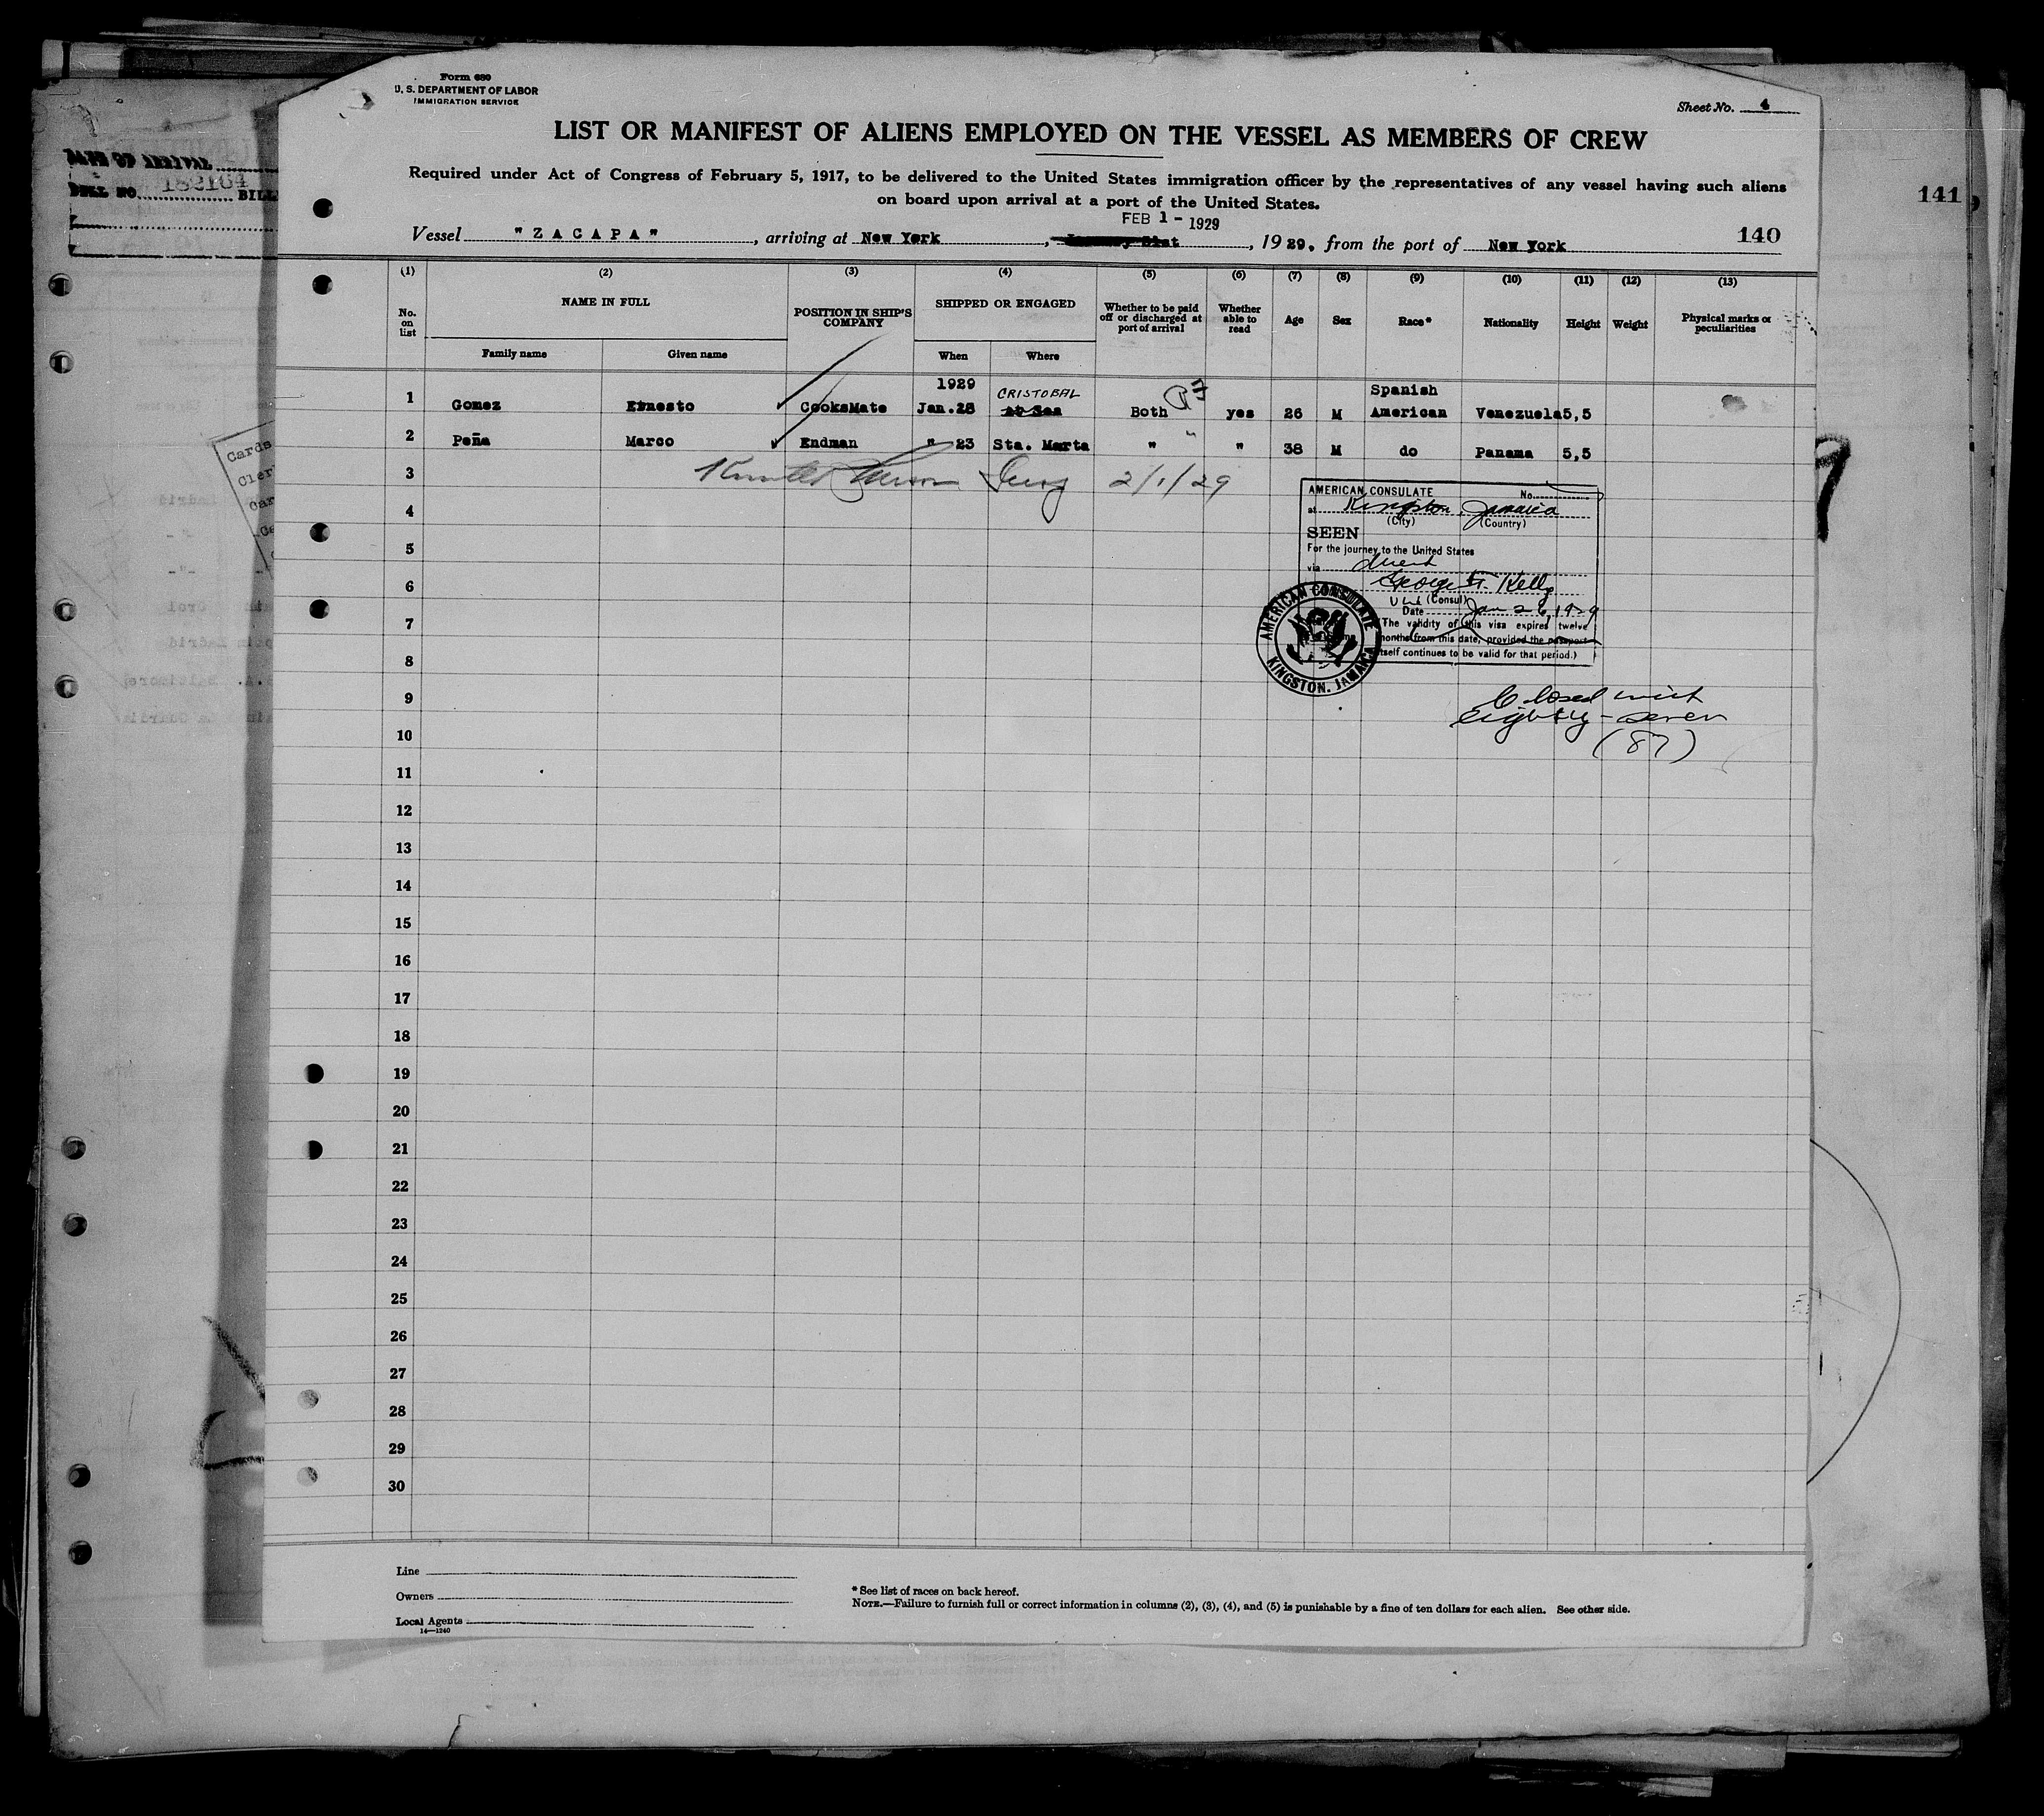 Form 680
U. S. DEPARTMENT OF LABOR
IMMIGRATION SERVICE
Sheet No. 4
LIST OR MANIFEST OF ALIENS EMPLOYED ON THE VESSEL AS MEMBERS OF CREW
Required under Act of Congress of February 5, 1917, to be delivered to the United States immigration officer by the representatives of any vessel having such aliens
on board upon arrival at a port of the United States.
FEB 1 - 1929
Vessel "ZACAPA", arriving at New York, January 31st, 1929, from the port of New York
140
141
DATE OF ARRIVAL
BILL NO. 182164 BILL
(1) (2) (3) (4) (5) (6) (7) (8) (9) (10) (11) (12) (13)
No. on list
NAME IN FULL
Family name Given name
POSITION IN SHIP'S COMPANY
SHIPPED OR ENGAGED
When Where
Whether to be paid off or discharged at port of arrival
Whether able to read
Age Sex Race* Nationality Height Weight
Physical marks or peculiarities
1929 CRISTOBAL Spanish
1 Gomez Ernesto CooksMate Jan.28 At Sea Both yes 26 M American Venezuela 5,5
2 Peña Marco Endman " 23 Sta. Marta " " 38 M do Panama 5,5
3 2/1/29
4
5
6
7
8
9
10
11
12
13
14
15
16
17
18
19
20
21
22
23
24
25
26
27
28
29
30
AMERICAN CONSULATE No.
at Kingston, Jamaica
(City) (Country)
SEEN
For the journey to the United States
via direct
George F. Kelly
(Consul)
Date Jan 26, 1929
(The validity of this visa expires twelve
months from this date, provided the passport
itself continues to be valid for that period.)
AMERICAN CONSULATE
KINGSTON, JAMAICA
Closed with
eighty-seven
(87)
Cards
Line
Owners
Local Agents
14—1240
* See list of races on back hereof.
NOTE.—Failure to furnish full or correct information in columns (2), (3), (4), and (5) is punishable by a fine of ten dollars for each alien. See other side.